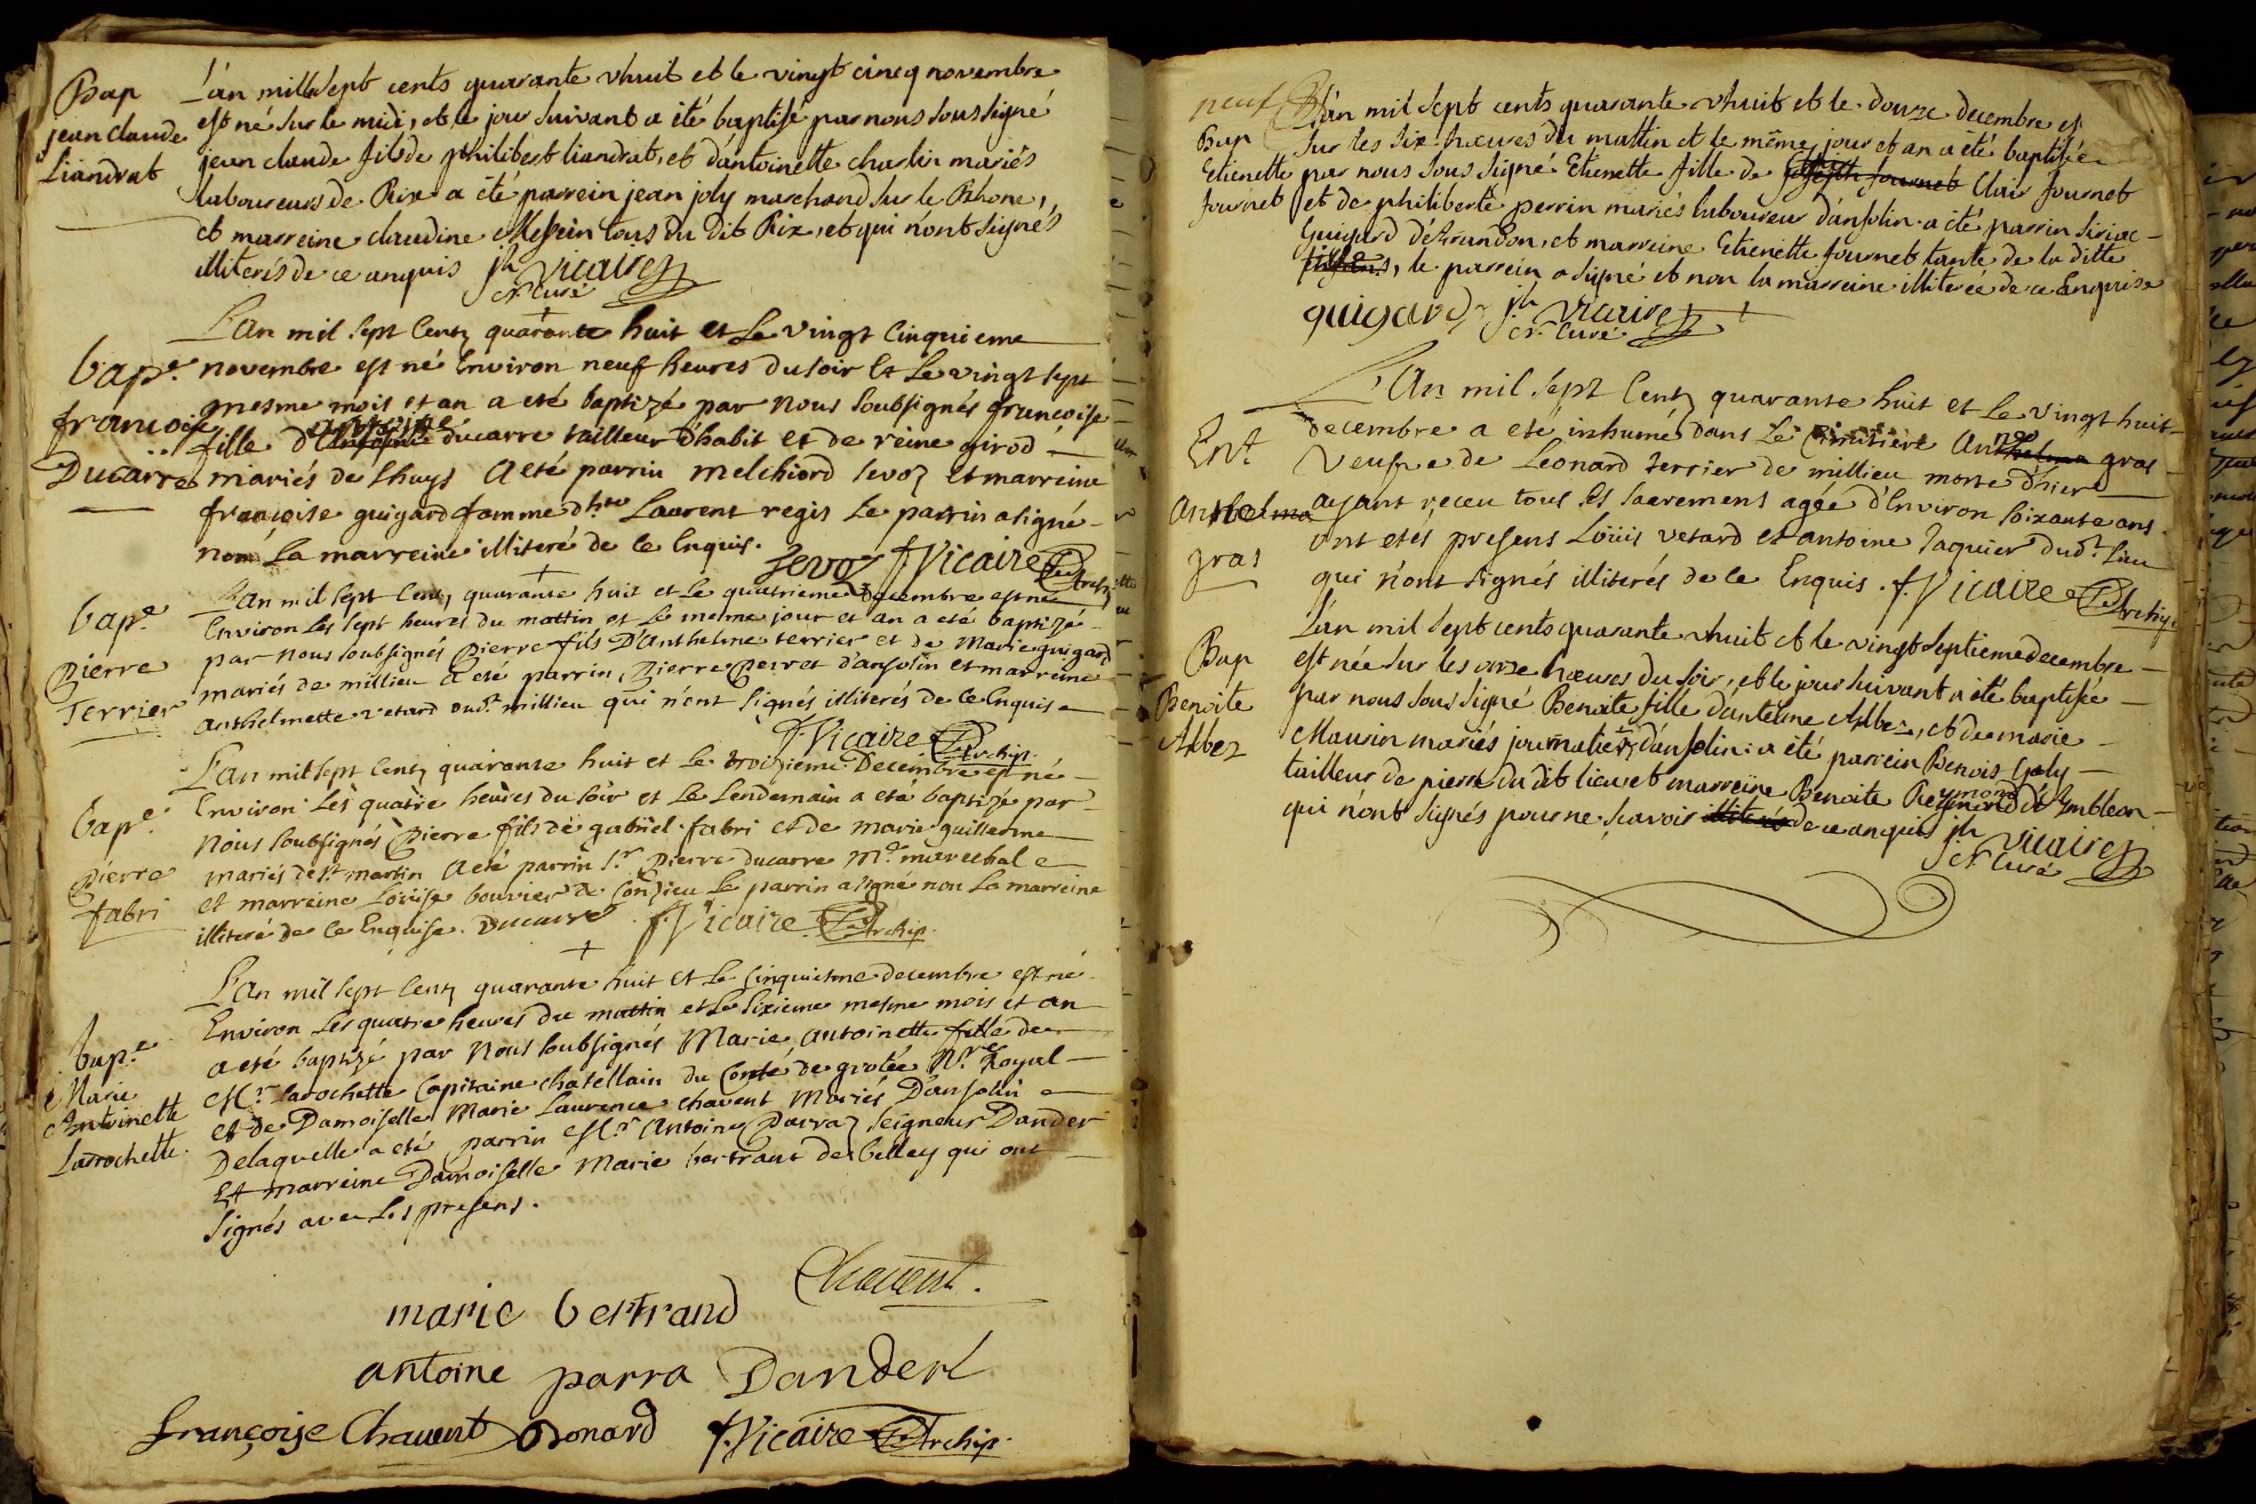 Bap
jean claude
Liandrat
L'an mil Sept cents quarante vhuit et le vingt cineq novembre
est né sur le midi, et le jour suivant a été baptisé par nous sous signé
jean claude fils de philibert liandrat, et d'antoinette charlin mariés
laboureurs de Rix a été parrein jean joly marchand sur le Rhone,
et marreine claudine Messein tous du dit Rix, et qui n'ont signés
illiterés de ce anquis jh vicaire
cr. Curé
bape.
francoise
Ducarre
L'An mil sept Centz quarante huit et Le vingt Cinquieme
novembre est né Environ neuf heures du soir Et Le vingt sept
mesme mois et an a eté baptizé par Nous soubsignés françoise
fille d'antoine ducarre tailleur d'habit et de reine girod
mariés de Lhuys A eté parrin Melchiord sevoz et marreine
françoise guigard famme d'hte Laurent regis Le parrin a signé
non La marreine illiteré de Ce Enquis. Sevoz f. Vicaire Archip.
bape.
Pierre
Terrier
L'an mil sept Centz quarante huit et Le quatrieme Decembre est né
Environ Les sept heures du mattin et Le mesme jour et an a eté baptizé
par Nous soubsignés Pierre fils D'Anthelme terrier et de Marie guigard
mariés de millieu a eté parrin Pierre Perret d'ansolin et marreine
anthelmette vetard dudt. millieu qui n'ont signés illiterés de Ce Enquis
f. Vicaire Archip.
bape.
Pierre
fabri
L'An mil sept Centz quarante huit et Le troizieme Decembre est né
Environ Les quatre heures du soir et Le Lendemain a eté baptizé par
Nous soubsignés Pierre fils de gabriel fabri et de marie guillerme
mariés de st. martin A eté parrin sr. Pierre ducarre Me. marechal
et marreine Loüise bouvier de Conzieu Le parrin a signé non La marreine
illiteré de Ce Enquise. Ducarre f. Vicaire Archip.
bape.
Marie
Antoinette
Larochette.
L'An mil sept Centz quarante huit et Le Cinquiesme decembre est né
Environ Les quatre heures du mattin et Le sixieme mesme mois et an
a eté baptizé par Nous soubsignés Marie Antoinette fille de
Mr. Larochette Capitaine chatellain du Conté de grolée Nre. Royal
et de Damoiselle Marie Laurence chavent Mariés D'ansolin
Delaquelle a eté parrin Mr. Antoine Parraz Seigneur Dander
Et marreine Damoiselle Marie bertrant de belley qui ont
signés avec Les presens.
Chavent.
marie bertrand
antoine parra Dandert
Françoise Chavent Bonard f. Vicaire Archip.
neuf
Bap
Etienette
fournet
L'an mil sept cents quarante vhuit et le douze decembre est
sur les six heures du mattin et le même jour et an a été baptisée
par nous sous signé Etienette fille de Clair fournet
et de philiberte perrin mariés laboureur d'ansolin a été parrin Siriac
Guigard d'Arandon, et marreine Etienette fournet tante de la ditte
, le parrein a signé et non la marreine illiterée de ce Enquise
guigard jh vicaire
cr. Curé
Ent.
Anthelma
gras
L'An mil sept Centz quarante huit et Le vingt huit
decembre a eté inhumé dans Le Cimitière gras
veufve de Leonard terrier de millieu morte d'hier
ayant receu tous Les sacremens agée d'Environ soixante ans
ont etés presens Loüis vetard et antoine Jaquier dudt. Lieu
qui n'ont signés illiterés de Ce Enquis. f. Vicaire Archip.
Bap
Benoite
Albez
L'an mil sept cents quarante vhuit et le vingt septieme decembre
est née sur les onze heures du soir, et le jour suivant a été baptisée
par nous sous signé Benoite fille d'antelme Albez, et de marie
Maurin mariés journaliers d'ansolin: a été parrein Benois Goly
tailleur de pierre du dit lieu et marreine Benoite Reymond d'Amblean
qui n'ont signés pour ne scavoir de ce anquis jh vicaire
cr. Curé